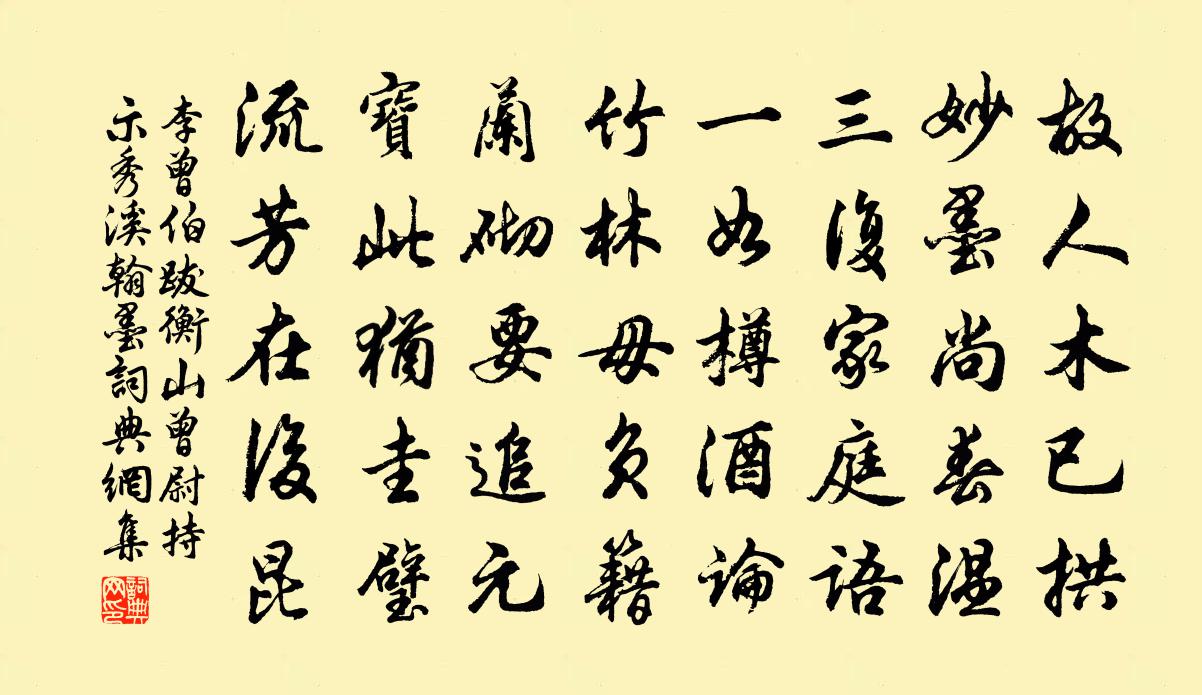 故人木已拱
妙墨尚春温
三復家庭語
一如樽酒論
竹林毋負籍
蘭砌要追元
寶此猶圭璧
流芳在後昆
李曾伯跋衡山曾尉持
示秀溪翰墨詞典網集
詞典網印